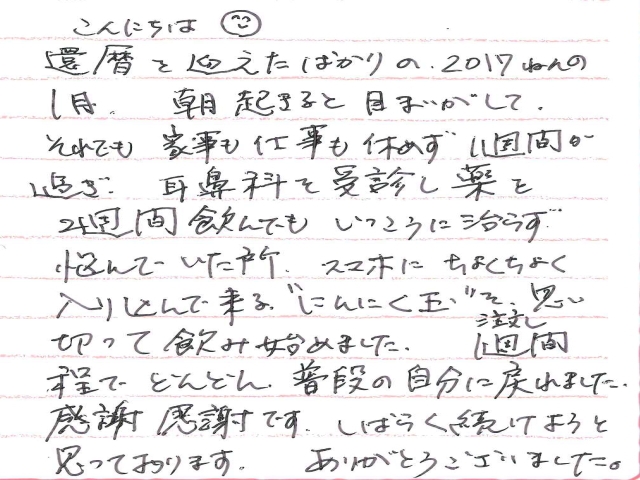 こんにちは
還暦を迎えたばかりの、2017ねんの
1月、朝起きると目まいがして、
それでも家事も仕事も休めず1週間が
過ぎ、耳鼻科を受診し薬を
2週間飲んでもいっこうに治らず
悩んでいた所、スマホにちょくちょく
入り込んで来る"にんにく玉"を、思い
切って注文し飲み始めました、1週間
程でどんどん、普段の自分に戻れました、
感謝感謝です、しばらく続けようと
思っております。ありがとうございました。